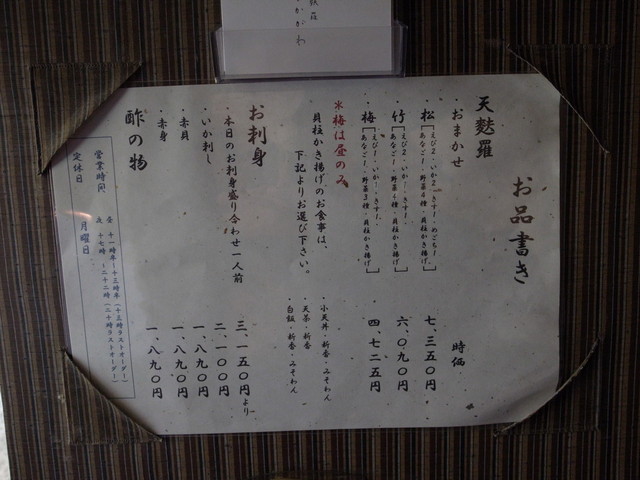 かがわ
お品書き
天麩羅
・おまかせ 時価
・松 [えび2・いか1・きす1・めごち1・あなご1・野菜4種・貝柱かき揚げ] 七、三五〇円
・竹 [えび2・いか1・きす1・あなご1・野菜4種・貝柱かき揚げ] 六、〇九〇円
・梅 [えび1・いか1・きす1・あなご1・野菜3種・貝柱かき揚げ] 四、七二五円
※梅は昼のみ
貝柱かき揚げのお食事は、
下記よりお選び下さい。
・小天丼・新香・みそわん
・天茶・新香
・白飯・新香・みそわん
お刺身
・本日のお刺身盛り合わせ一人前 三、一五〇円より
・いか刺し 二、一〇〇円
・赤貝 一、八九〇円
・赤身 一、八九〇円
酢の物 一、八九〇円
営業時間 昼 十一時半〜十三時半(十三時ラストオーダー)
夜 十七時〜二十二時(二十時ラストオーダー)
定休日 月曜日